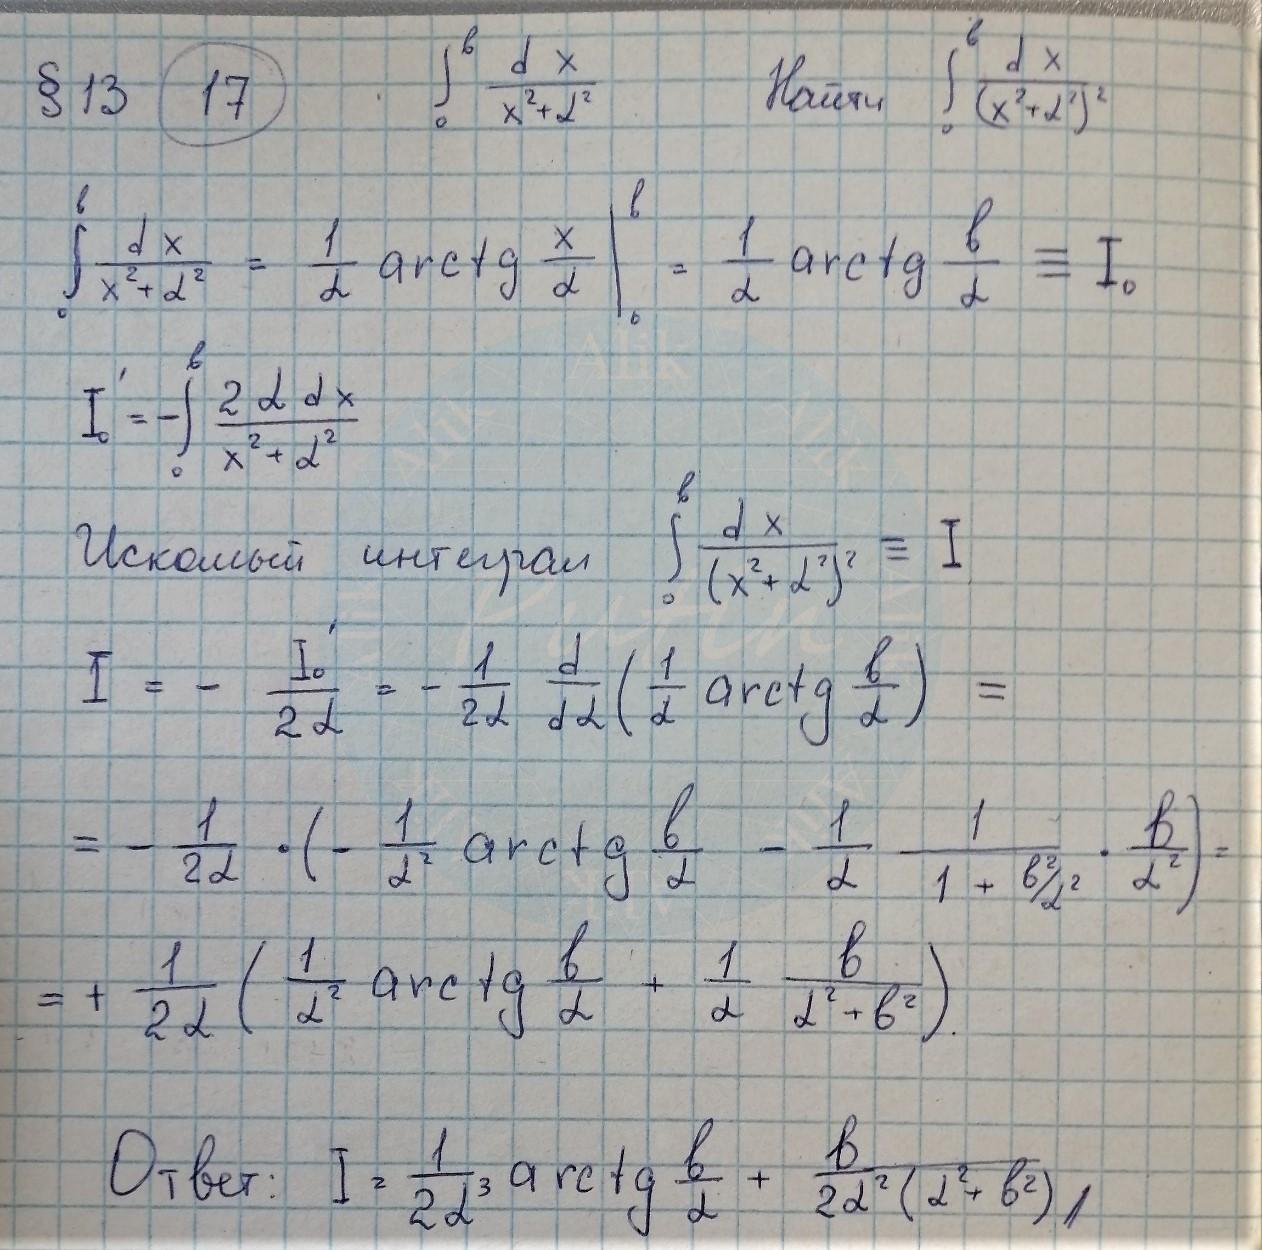 § 13 17 ∫₀ᵇ dx/(x²+α²) Найти ∫₀ᵇ dx/(x²+α²)²
∫₀ᵇ dx/(x²+α²) = 1/α arctg x/α |₀ᵇ = 1/α arctg b/α ≡ I₀
I₀' = -∫₀ᵇ 2α dx/(x²+α²)
Искомый интеграл ∫₀ᵇ dx/(x²+α²)² ≡ I
I = - I₀'/2α = - 1/2α d/dα (1/α arctg b/α) =
= - 1/2α · (- 1/α² arctg b/α - 1/α 1/(1 + b²/α²) · b/α²) =
= + 1/2α (1/α² arctg b/α + 1/α b/(α²+b²)).
Ответ: I = 1/2α³ arctg b/α + b/2α²(α²+b²)